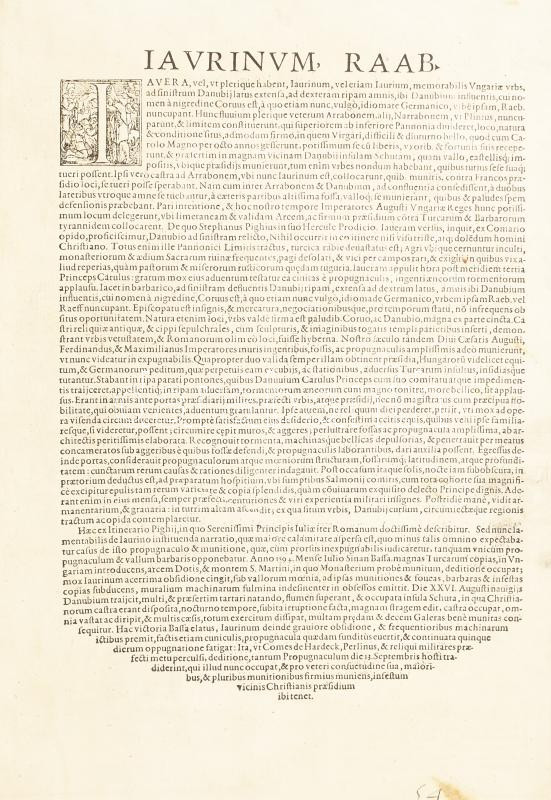 IAVRINVM, RAAB.
IAVERA, vel, vt plerique habent, Iaurinum, vel etiam Iaurium, memorabilis Vngariæ vrbs,
ad sinistrum Danubij latus extensa, ad dexteram ripam amnis, ibi Danubium influentis, cui no-
men à nigredine Coruus est, à quo etiam nunc, vulgò, idiomate Germanico, vrbē ipsam, Raeb.
nuncupant. Hunc fluuium plerique veterum Arrabonem, alij, Narrabonem, vt Plinius, nuncu-
parunt, & limitem constituerunt, qui superiorem ab inferiore Pannonia diuideret, loco, natura
& conditione situs, admodum firmo, in quem Vngari, difficili & diuturno bello, quod cum Ca-
rolo Magno per octo annos gesserunt, potissimum se cū liberis, vxorib. & fortunis suis recepe-
runt, & præterim in magnam vicinam Danubij insulam Schutam, quam vallo, castellisq; im-
positis, vbique præsidijs munierunt, tum enim vrbes nondum habebant, quibus tutius sese suaq;
tueri possent. Ipsi verò castra ad Arrabonem, vbi nunc Iaurinum est, collocarunt, quib. munitis, contra Francos præ-
sidio loci, se tueri posse sperabant. Nam cum inter Arrabonem & Danubium, ad confluentia consedissent, à duobus
lateribus vtroque amne se tuebantur, à cæteris partibus altissima fossa, valloq; se munierant, quibus & paludes spem
defensionis præbebant. Pari intentione, & hoc nostro tempore Imperatores Augusti Vngariæ Reges hunc potissi-
mum locum delegerunt, vbi limetaneam & validam Arcem, ac firmum præsidium cōtra Turcarum & Barbarorum
tyrannidem collocarent. De quo Stephanus Pighius in suo Hercule Prodicio. Iaueram verſus, inquit, ex Comario
opido, proficiscimur, Danubio ad sinistram relicto, Nihil occurrit in itinere nisi visu triste, atq; dolēdum homini
Christiano. Totus enim ille Pannonici Limitis tractus, turcica rabie deuastatus est; Agri vbique cernuntur inculti,
monasteriorum & ædium Sacrarum ruinæ frequentes, pagi desolati, & vici per campos rari, & exigui, in quibus vix a-
liud reperias, quàm pastorum & miserorum rusticorum quædam tuguria. Iaueram appulit hora post meridiem tertia
Princeps Carulus: gratum mox eius aduentum testatur ea ciuitas è propugnaculis, ingenti æneorum tormentorum
applausu. Iacet in barbarico, ad sinistram defluentis Danubij ripam, extensa ad dextrum latus, amnis ibi Danubium
influentis, cui nomen à nigredine, Coruus est, à quo etiam nunc vulgò, idioma de Germanico, vrbem ipsam Raeb, vel
Raeff nuncupant. Episcopatu est insignis, & mercatura, negociationibusque, pro temporum statu, nō infrequens ob
situs oportunitatem. Natura etenim loci, vrbs valde firma est paludib. Coruo, ac Danubio, magna ex parte cincta. Ca-
stri reliquiæ antiquæ, & cippi sepulchrales, cum sculpturis, & imaginibus togatis templi parietibus inserti, demon-
strant vrbis vetustatem, & Romanorum olim eō loci, fuisse hyberna. Nostro sæculo tandem Diui Cæsaris Augusti,
Ferdinandus, & Maximilianus Imperatores muris ingentibus, fossis, ac propugnaculis amplissimis adeò munierunt,
vt nunc videatur inexpugnabilis. Quapropter duo valida semper illam obtinent præsidia, Hungarorū videlicet equi-
tum, & Germanorum peditum, quæ perpetuis eam excubijs, ac stationibus, aduersus Turcarum insultus, insidiasque
tutantur. Stabant in ripa parati pontones, quibus Danuuium Carulus Princeps cum suo comitatu atque impedimen-
tis traijceret, appellentiq; in ripam aduersam, tormentorum æneorum cum magno tonitru, more bellico, fit applau-
sus. Erant in armis ante portas præsidiarij milites, præfecti vrbis, atque præsidij, nec nō magistratus cum præcipua no-
bilitate, qui obuiam venientes, aduentum gratulantur. Ipse autem, ne reliquum diei perderet, petijt, vti mox ad ope-
ra visenda circum duceretur. Promptè satisfactum eius desiderio, & confestim accitis equis, quibus veni ipse familia-
resque, si viderētur, possent; circumire cœpit muros, & aggeres; perlustrare fossas ac propugnacula amplissima, ab ar-
chitectis peritissimis elaborata. Recognouit tormenta, machinasque bellicas depulsorias, & penetrauit per meatus
concameratos sub aggeribus è quibus fossæ defendi, & propugnaculis laborantibus, dari auxilia possent. Egressus de-
inde portas, considerauit propugnaculorum atque mœniorum structuram, fossarumq; latitudinem, atque profundi-
tatem: cunctarum rerum causas & rationes diligenter indagauit. Post occasum itaque solis, nocte iam subobscura, in
prætorium deductus est, ad præparatum hospitium, vbi sumptibus Salmonij comitis, cum tota cohorte sua magnifi-
cè excipitur epulis tam rerum varietate & copia splendidis, quàm cōuiuarum exquisito delecto Principe dignis. Ade-
rant enim in eius mensa, semper præfecti centuriones & viri experientia militari insignes. Postridie manè, vidit ar-
mamentarium, & granaria: in turrim altam ascendit; ex qua situm vrbis, Danubij cursum, circumiectæque regionis
tractum ac opida contemplaretur.
Hæc ex Itinerario Pighij, in quo Serenissimi Principis Iuliæ iter Romanum doctissimè describitur. Sed nunc la-
mentabilis de Iaurino instituenda narratio, quæ maiore calamitate aspersa est, quo minus talis omnino expectaba-
tur casus de isto propugnaculo & munitione, quæ, cùm prorsus inexpugnabilis iudicaretur, tanquam vnicum pro-
pugnaculum & vallum barbaris opponebatur. Anno 1594. Mense Iulio Sinan Bassa, magnas Turcarum copias, in Vn-
gariam introducens, arcem Dotis, & montem S. Martini, in quo Monasterium probè munitum, deditione occupat;
mox Iaurinum acerrima obsidione cingit, sub vallorum mœnia, ad ipsas munitiones & foueas, barbaras & infestas
copias subducens, muralium machinarum fulmina indesinenter in obsessos emittit. Die XXVI. Augusti nauigia
Danubium traijcit, multi, & præsertim tartari natando, flumen superant, & occupata insula Schuta, in qua Christia-
norum castra erant disposita, nocturno tempore, subita irruptione facta, magnam stragem edit, castra occupat, om-
nia vastat ac diripit, & multis cæsis, totum exercitum dissipat, multam prædam & decem Galeras benè munitas con-
sequitur. Hac victoria Bassa elatus, Iaurinum deinde grauiore obsidione, & frequentioribus machinarum
ictibus premit, factis etiam cuniculis, propugnacula quædam funditus euertit, & continuata quinque
dierum oppugnatione fatigat: Ita, vt Comes de Hardeck, Perlinus, & reliqui militares præ-
fecti metu perculsi, deditione, tantum Propugnaculum die 13. Septembris hosti tra-
diderint, qui illud nunc occupat, & pro veteri consuetudine sua, maiori-
bus, & pluribus munitionibus firmius muniens, infestum
vicinis Christianis præsidium
ibi tenet.